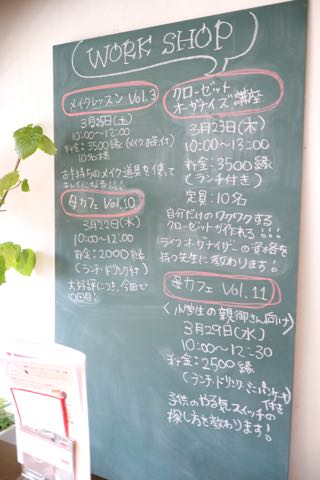 WORK SHOP
メイクレッスン Vol.3
3月25日(土)
10:00〜12:00
料金:3500縁(メイクお茶付)
10名様
お手持ちのメイク道具を使って
キレイになる!!!
母カフェ Vol.10
3月22日(水)
10:00〜12:00
料金:2000縁
(ランチ・ドリンク付)
大好評につき、今回で
10回目!
クローゼット
オーガナイズ講座
3月23日(木)
10:00〜13:00
料金:3500縁
(ランチ付き)
定員:10名
自分だけのワクワクする
クローゼットが作れる!!!
ライフオーガナイザーの資格を
持つ先生に教わります!
母カフェ Vol.11
〈小学生の親御さん向け〉
3月29日(水)
10:00〜12:30
料金:2500縁
(ランチ・ドリンク・ミニパンケーキ付き)
子供のやる気スイッチの
探し方を教わります!